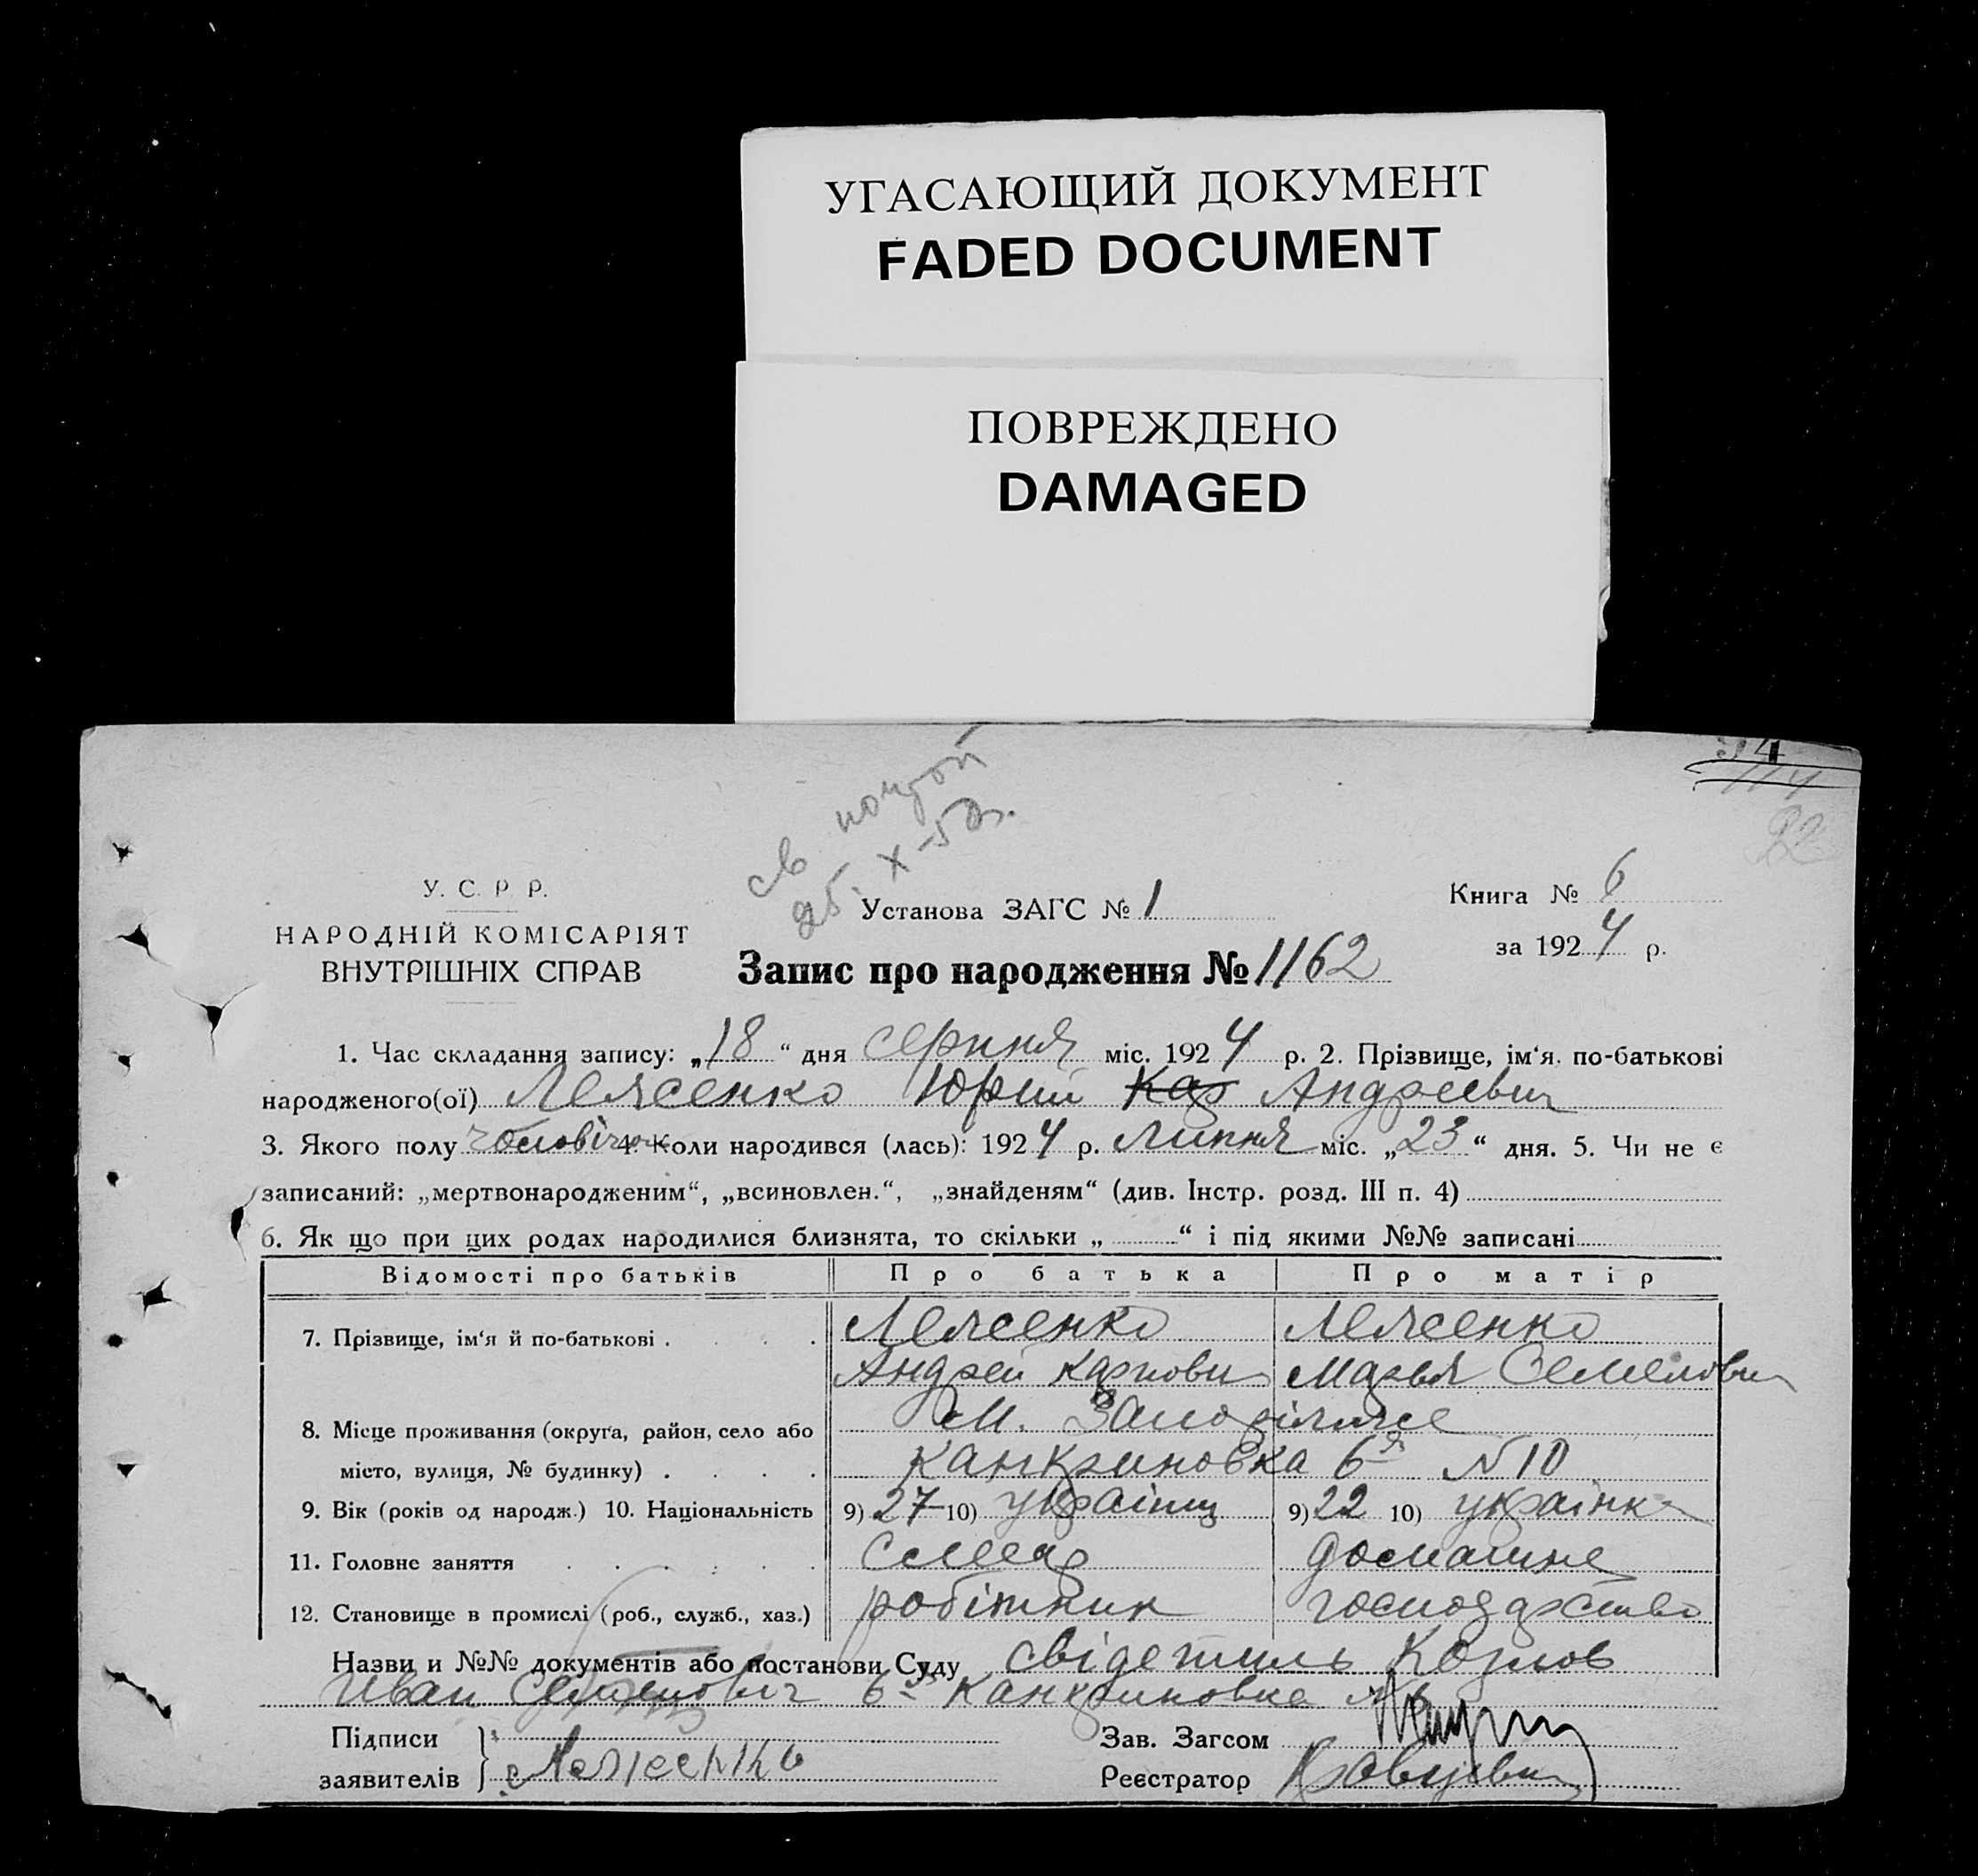 УГАСАЮЩИЙ ДОКУМЕНТ
FADED DOCUMENT
ПОВРЕЖДЕНО
DAMAGED
У. С. Р. Р.
НАРОДНІЙ КОМІСАРІЯТ
ВНУТРІШНІХ СПРАВ
Установа ЗАГС № 1
Книга № 6
за 1924 р.
Запис про народження № 1162
1. Час складання запису: „18“ дня серпня міс. 1924 р. 2. Прізвище, ім‘я, по-батькові
народженого(ої) Юрий Кар Андреевич
3. Якого полу чоловічи 4. Коли народився (лась): 1924 р. липня міс. „23“ дня. 5. Чи не є
записаний: „мертвонародженим“, „всиновлен.“, „знайденям“ (див. Інстр. розд. III п. 4)
6. Як що при цих родах народилися близнята, то скільки „ “ і під якими №№ записані
Відомості про батьків Про батька Про матір
7. Прізвище, ім‘я й по-батькові
Андрей Карпович Марья
8. Місце проживання (округа, район, село або м. Запоріжже
місто, вулиця, № будинку) Канкриновка 6я №10
9. Вік (років од народж.) 10. Національність 9) 27 10) україиц 9) 22 10) українка
11. Головне заняття домашне
12. Становище в промислі (роб., служб., хаз.) робітник господарство
Назви и №№ документів або постанови Суду свідетиль Козлов
Иван 6я Канкриновка №
Підписи
заявителів
Зав. Загсом
Реєстратор